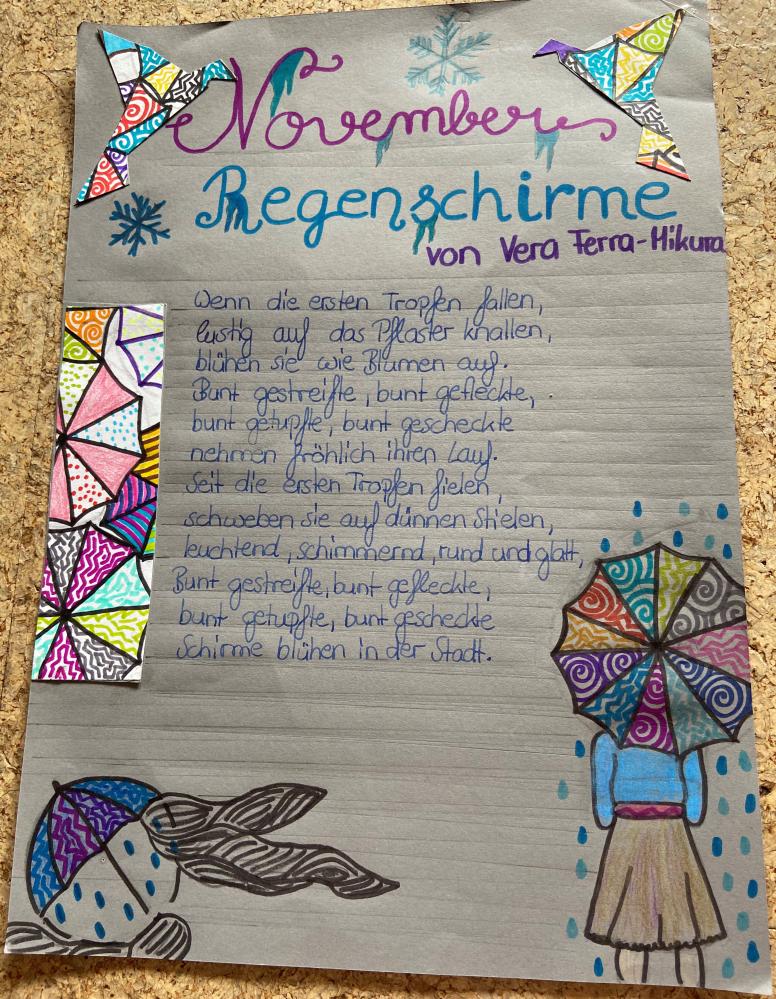 November
Regenschirme
von Vera Ferra-Mikura
Wenn die ersten Tropfen fallen,
lustig auf das Pflaster knallen,
blühen sie wie Blumen auf.
Bunt gestreifte, bunt gefleckte,
bunt getupfte, bunt gescheckte
nehmen fröhlich ihren Lauf.
Seit die ersten Tropfen fielen,
schweben sie auf dünnen Stielen,
leuchtend, schimmernd, rund und glatt,
Bunt gestreifte, bunt gefleckte,
bunt getupfte, bunt gescheckte
Schirme blühen in der Stadt.